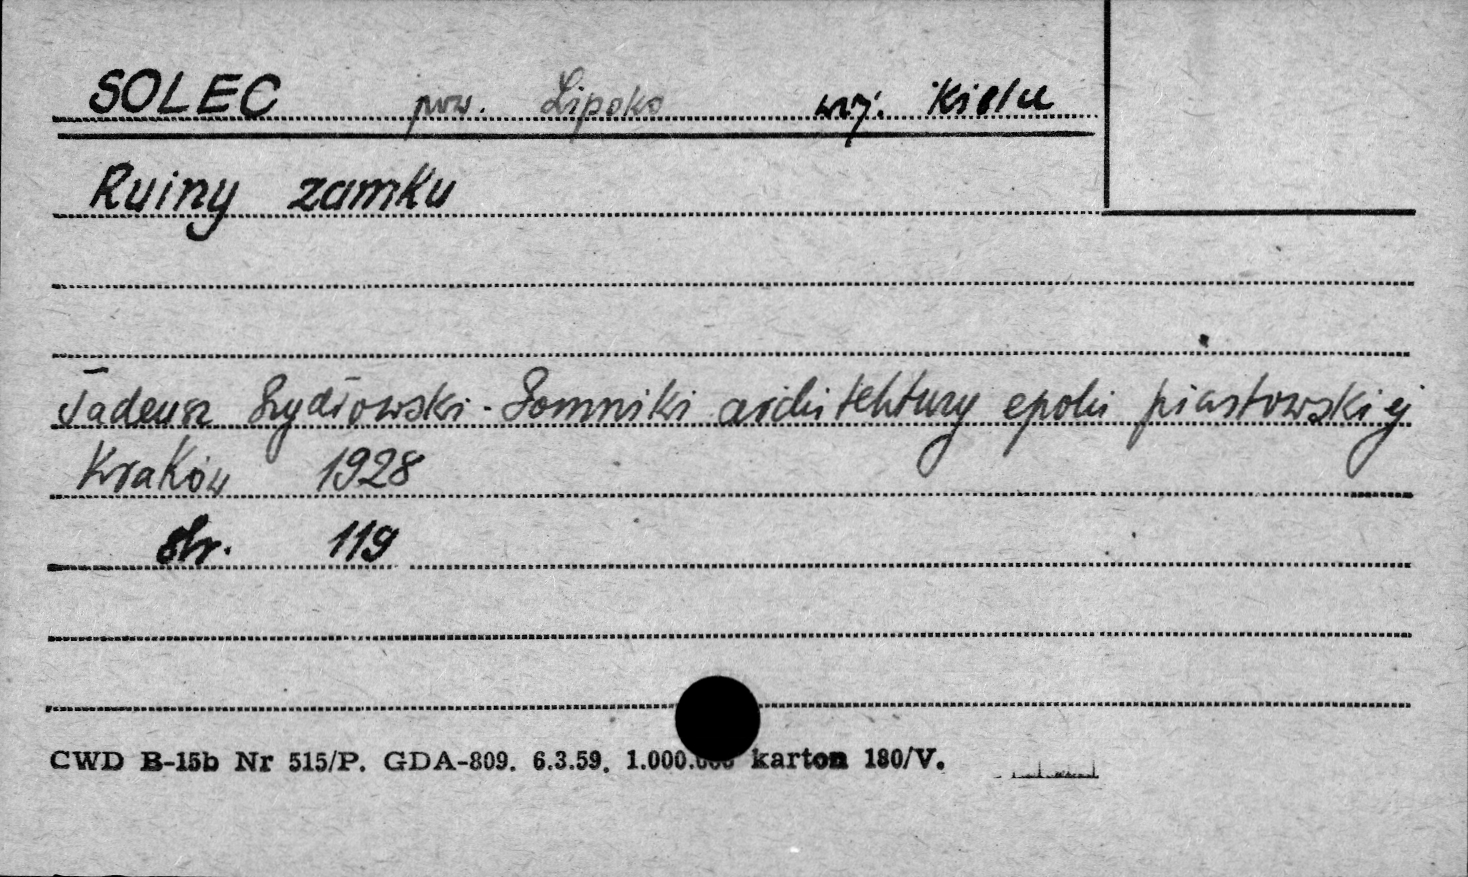 SOLEC pow. Lipsko woj. Kielce
Ruiny zamku
Tadeusz Szydłowski - Pomniki architektury epoki piastowskiej
Kraków 1928
str. 119
CWD B-15b Nr 515/P. GDA-809. 6.3.59. 1.000.000 karton 180/V.